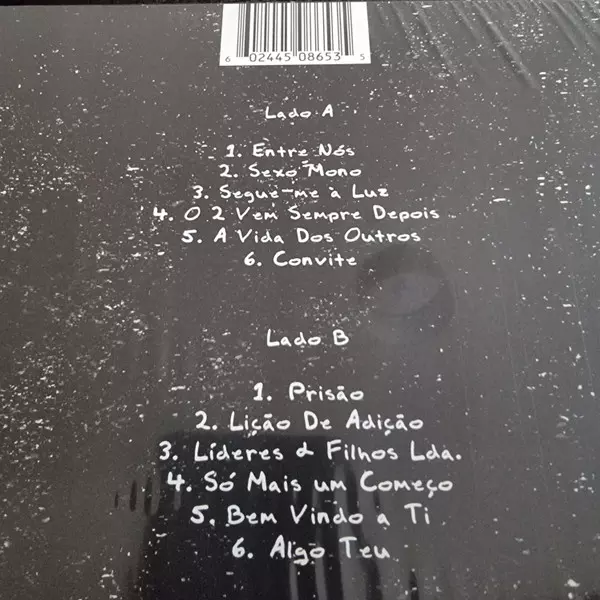 6 02445 08653 5
Lado A
1. Entre Nós
2. Sexo Mono
3. Segue-me à Luz
4. O 2 Vem Sempre Depois
5. A Vida Dos Outros
6. Convite
Lado B
1. Prisão
2. Lição De Adição
3. Líderes & Filhos Lda.
4. Só Mais um Começo
5. Bem Vindo a Ti
6. Algo Teu